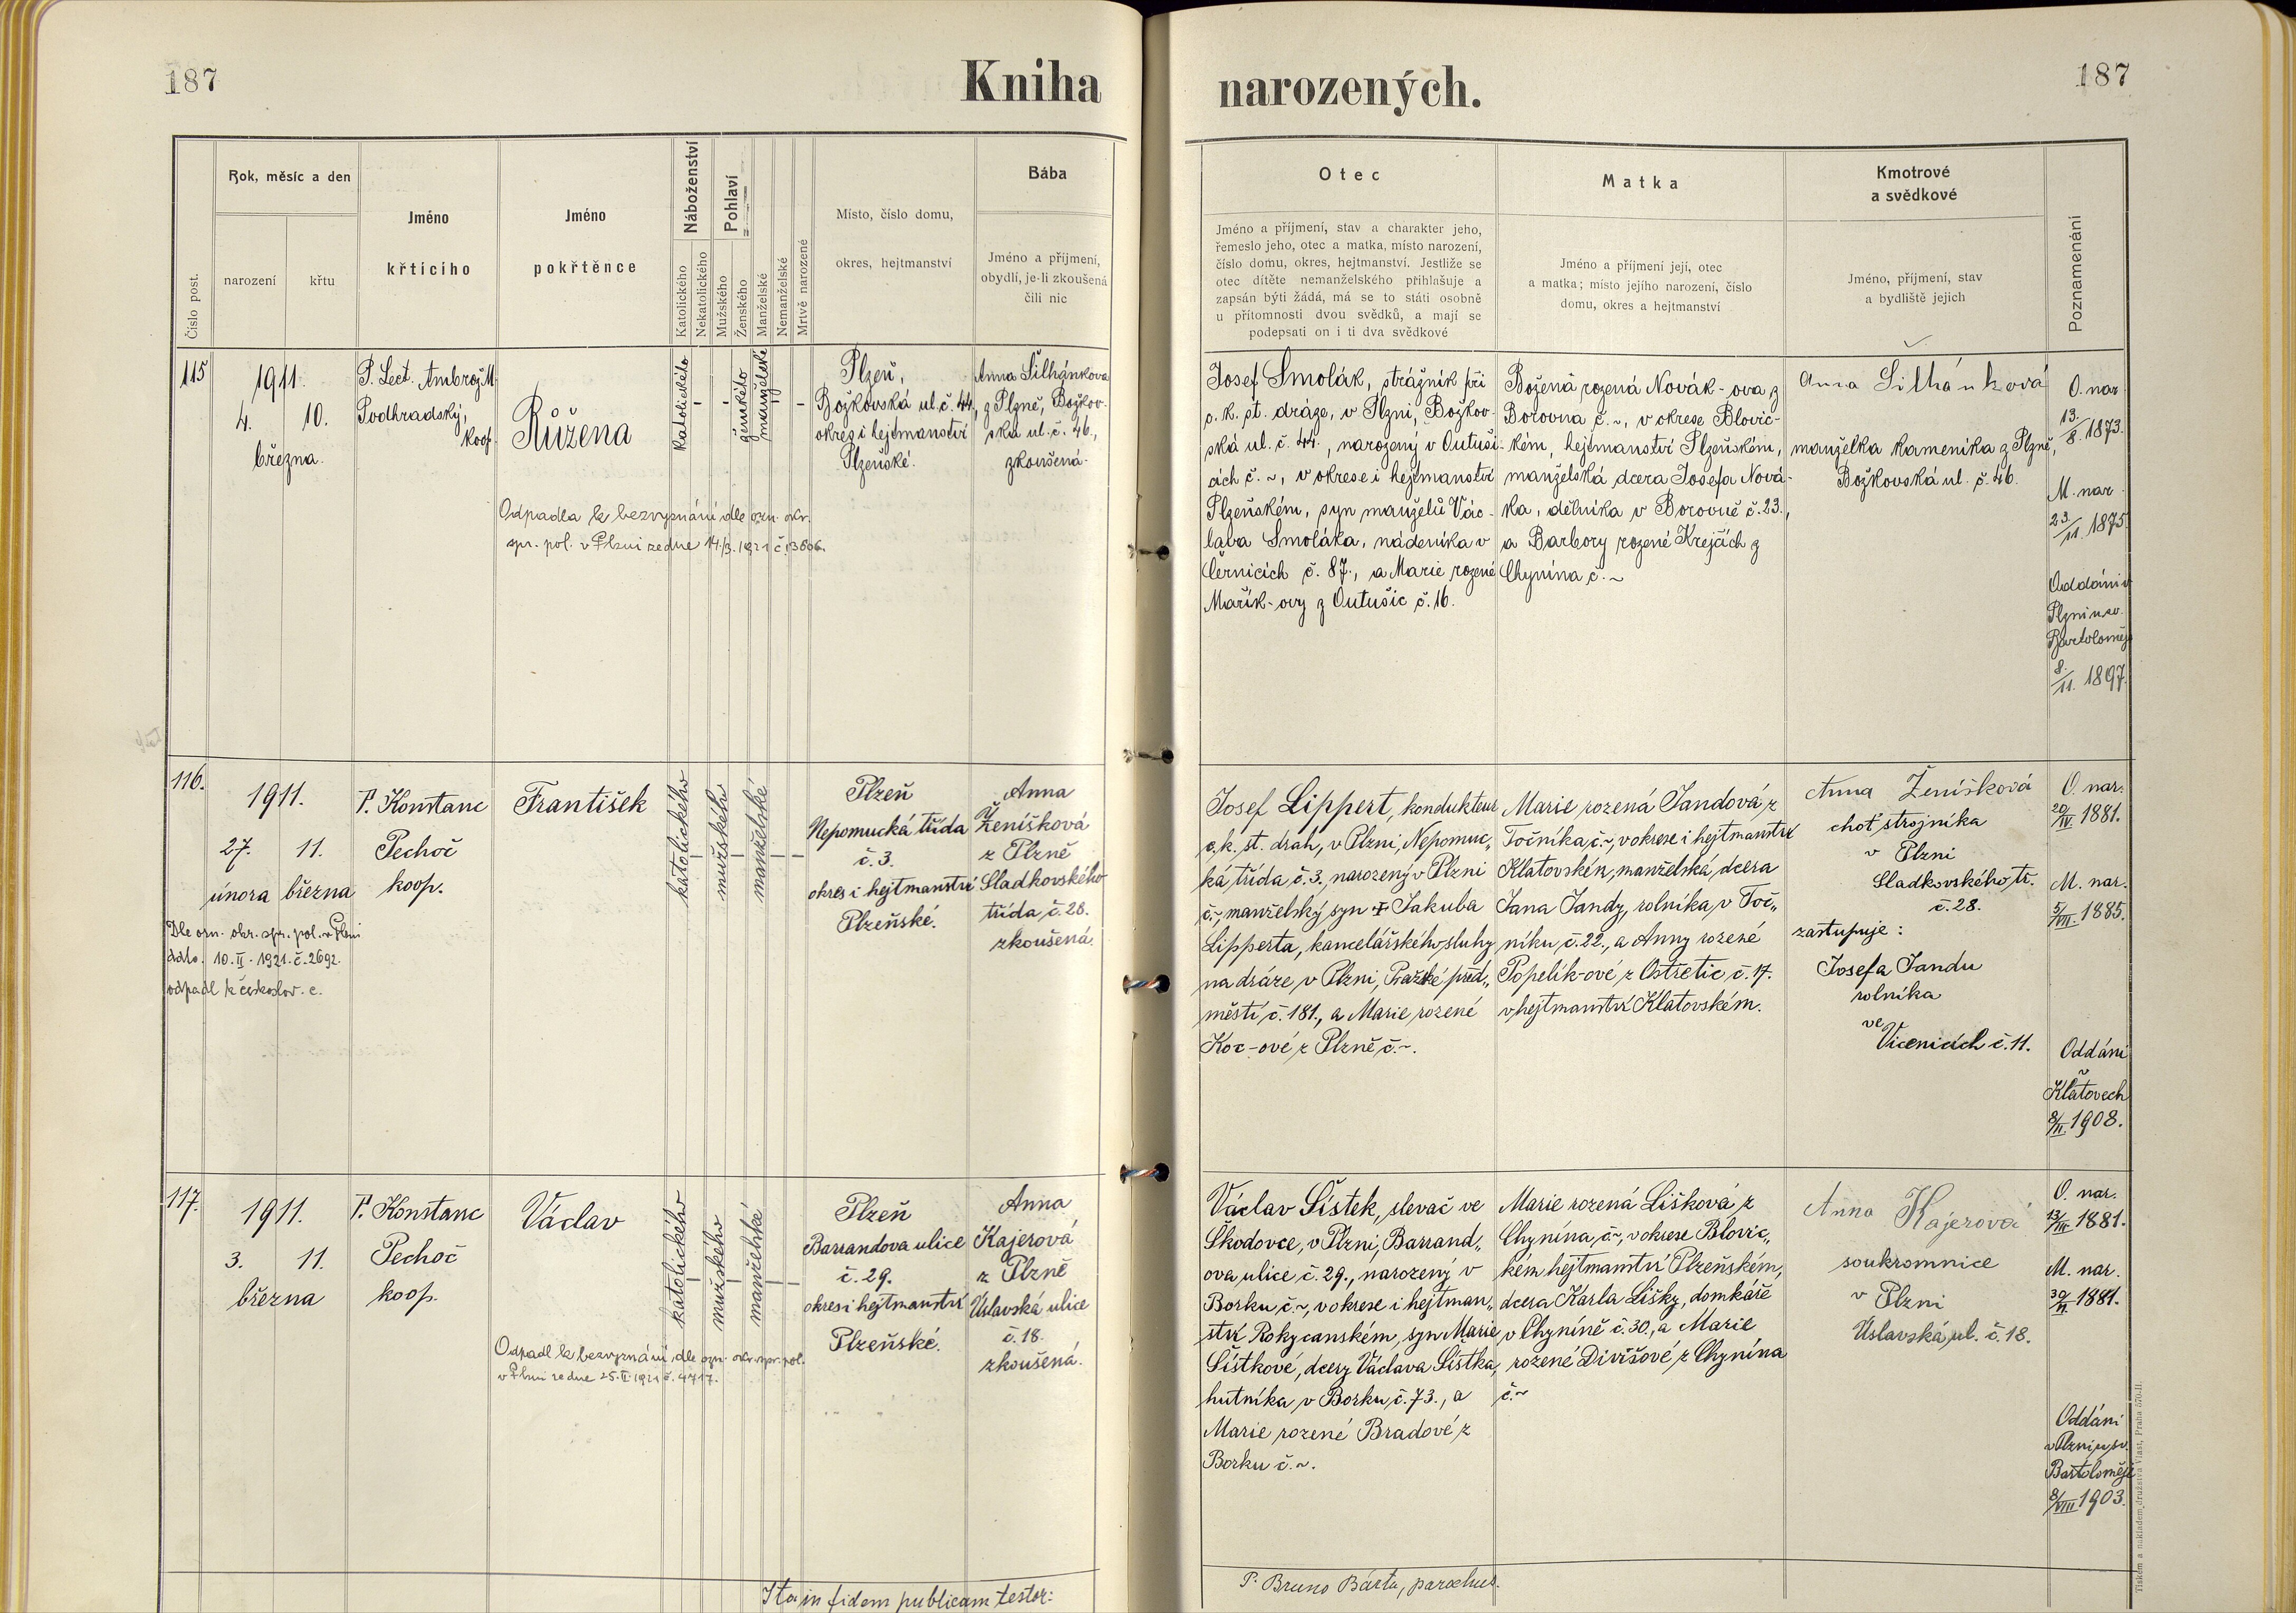 187
Kniha
narozených.
187
Číslo post.
Rok, měsíc a den
narození
křtu
Jméno
křticího
Jméno
pokřtěnce
Náboženství
Katolického
Nekatolického
Pohlaví
Mužského
Ženského
Manželské
Nemanželské
Mrtvě narozené
Místo, číslo domu,
okres, hejtmanství
Bába
Jméno a příjmení,
obydlí, je-li zkoušená
čili nic
Otec
Jméno a příjmení, stav a charakter jeho,
řemeslo jeho, otec a matka, místo narození,
číslo domu, okres, hejtmanství. Jestliže se
otec dítěte nemanželského přihlašuje a
zapsán býti žádá, má se to státi osobně
u přítomnosti dvou svědků, a mají se
podepsati on i ti dva svědkové
Matka
Jméno a příjmení její, otec
a matka; místo jejího narození, číslo
domu, okres a hejtmanství
Kmotrové
a svědkové
Jméno, příjmení, stav
a bydliště jejich
Poznamenání
115
1911.
4. 10.
března.
P. Lect. Ambrož M.
Podhradský,
koop.
Růžena
Katolického
ženského
manželské
Plzeň,
Božkovská ul. č. 44.,
okres i hejtmanství
Plzeňské.
Anna Šilhánkova
z Plzně, Božkov-
ská ul. č. 46.,
zkoušená.
Odpadla k bezvyznání dle ozn. okr.
spr. pol. v Plzni ze dne 14./3. 1921 č. 13806.
Josef Smolák, strážník při
c. k. st. dráze, v Plzni, Božkov-
ská ul. č. 44., narozený v Outuši-
cích č. ~, v okrese i hejtmanství
Plzeňském, syn manželů Vác-
lava Smoláka, nádeníka v
Černicích č. 87., a Marie rozené
Mařík-ovy z Outušic č. 16.
Božena rozená Novák-ova z
Borovna č. ~, v okrese Blovic-
kém, hejtmanství Plzeňském,
manželská dcera Josefa Nová-
ka, dělníka v Borovně č. 23.,
a Barbory rozené Krejčích z
Chynína č. ~
Anna Šilhánková
manželka kameníka z Plzně,
Božkovská ul. č. 46.
O. nar.
13./8. 1873.
M. nar.
23./11. 1875.
Oddáni v
Plzni u sv.
Bartoloměje
8./11. 1897.
116.
1911.
27. 11.
února března
P. Konstanc
Pechoč
koop.
František
katolického
mužského
manželské
Plzeň
Nepomucká třída
č. 3.
okres i hejtmanství
Plzeňské.
Anna
Ženíšková
z Plzně
Sladkovského
třída č. 28.
zkoušená.
Dle ozn. okr. spr. pol. v Plzni
ddto. 10. II. 1921. č. 2692.
odpadl k českoslov. c.
Josef Lippert, kondukteur
c. k. st. drah, v Plzni, Nepomuc„
ká třída č. 3., narozený v Plzni
č. ~, manželský syn ✝ Jakuba
Lipperta, kancelářského sluhy
na dráze v Plzni, Pražské před„
městí č. 181., a Marie rozené
Koc-ové z Plzně č. ~.
Marie rozená Jandová z
Točníka č. ~, v okrese i hejtmanství
Klatovském, manželská dcera
Jana Jandy, rolníka v Toč„
níku č. 22., a Anny rozené
Popelík-ové z Ostřetic č. 17.
v hejtmanství Klatovském.
Anna Ženíšková
choť strojníka
v Plzni
Sladkovského tř.
č. 28.
zastupuje:
Josefa Jandu
rolníka
ve
Vícenicích č. 11.
O. nar.
20/IV. 1881.
M. nar.
5/VIII. 1885.
Oddáni
v
Klatovech
8/II. 1908.
117.
1911.
3. 11.
března
P. Konstanc
Pechoč
koop.
Václav
katolického
mužského
manželské
Plzeň
Barrandova ulice
č. 29.
okres i hejtmanství
Plzeňské.
Anna
Kajerová
z Plzně
Úslavská ulice
č. 18.
zkoušená.
Odpadl k bezvyznání, dle ozn. okr. spr. pol.
v Plzni ze dne 25. II. 1921 č. 4717.
Václav Šístek, slevač ve
Škodovce, v Plzni, Barrand„
ova ulice č. 29., narozený v
Borku č. ~, v okrese i hejtman„
ství Rokycanském, syn Marie
Šístkové, dcery Václava Šístka,
hutníka v Borku č. 73., a
Marie rozené Bradové z
Borku č. ~.
Marie rozená Lišková z
Chynína, č. ~, v okrese Blovic„
kém hejtmanství Plzeňském,
dcera Karla Lišky, domkáře
v Chyníně č. 30., a Marie
rozené Divišové z Chynína
č. ~
Anna Kajerová
soukromnice
v Plzni
Úslavská ul. č. 18.
O. nar.
1881.
M. nar.
1881.
Oddáni
v Plzni u sv.
Bartoloměje
8/VIII 1903.
Ita in fidem publicam testor:
P. Bruno Bárta, parochus.
Tiskem a nákladem družstva Vlast, Praha 570-II.